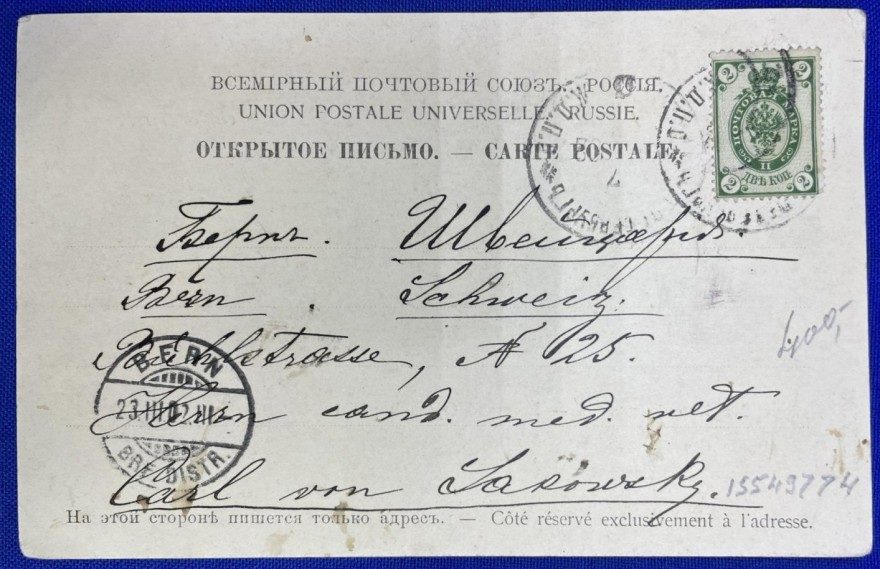 ВСЕМІРНЫЙ ПОЧТОВЫЙ СОЮЗЪ. РОССІЯ.
UNION POSTALE UNIVERSELLE. RUSSIE.
ОТКРЫТОЕ ПИСЬМО. — CARTE POSTALE.
2 2
ПОЧТОВАЯ МАРКА
II
2 ДВѢ КОП. 2
7
Бернъ. Швейцарія.
Bern. Schweiz.
strasse, N 25.
BERN
23.III.02.
BRF. DISTR.
Herrn cand. med. vet.
Carl von
400,-
15549774
На этой сторонѣ пишется только адресъ. — Côté réservé exclusivement à l'adresse.